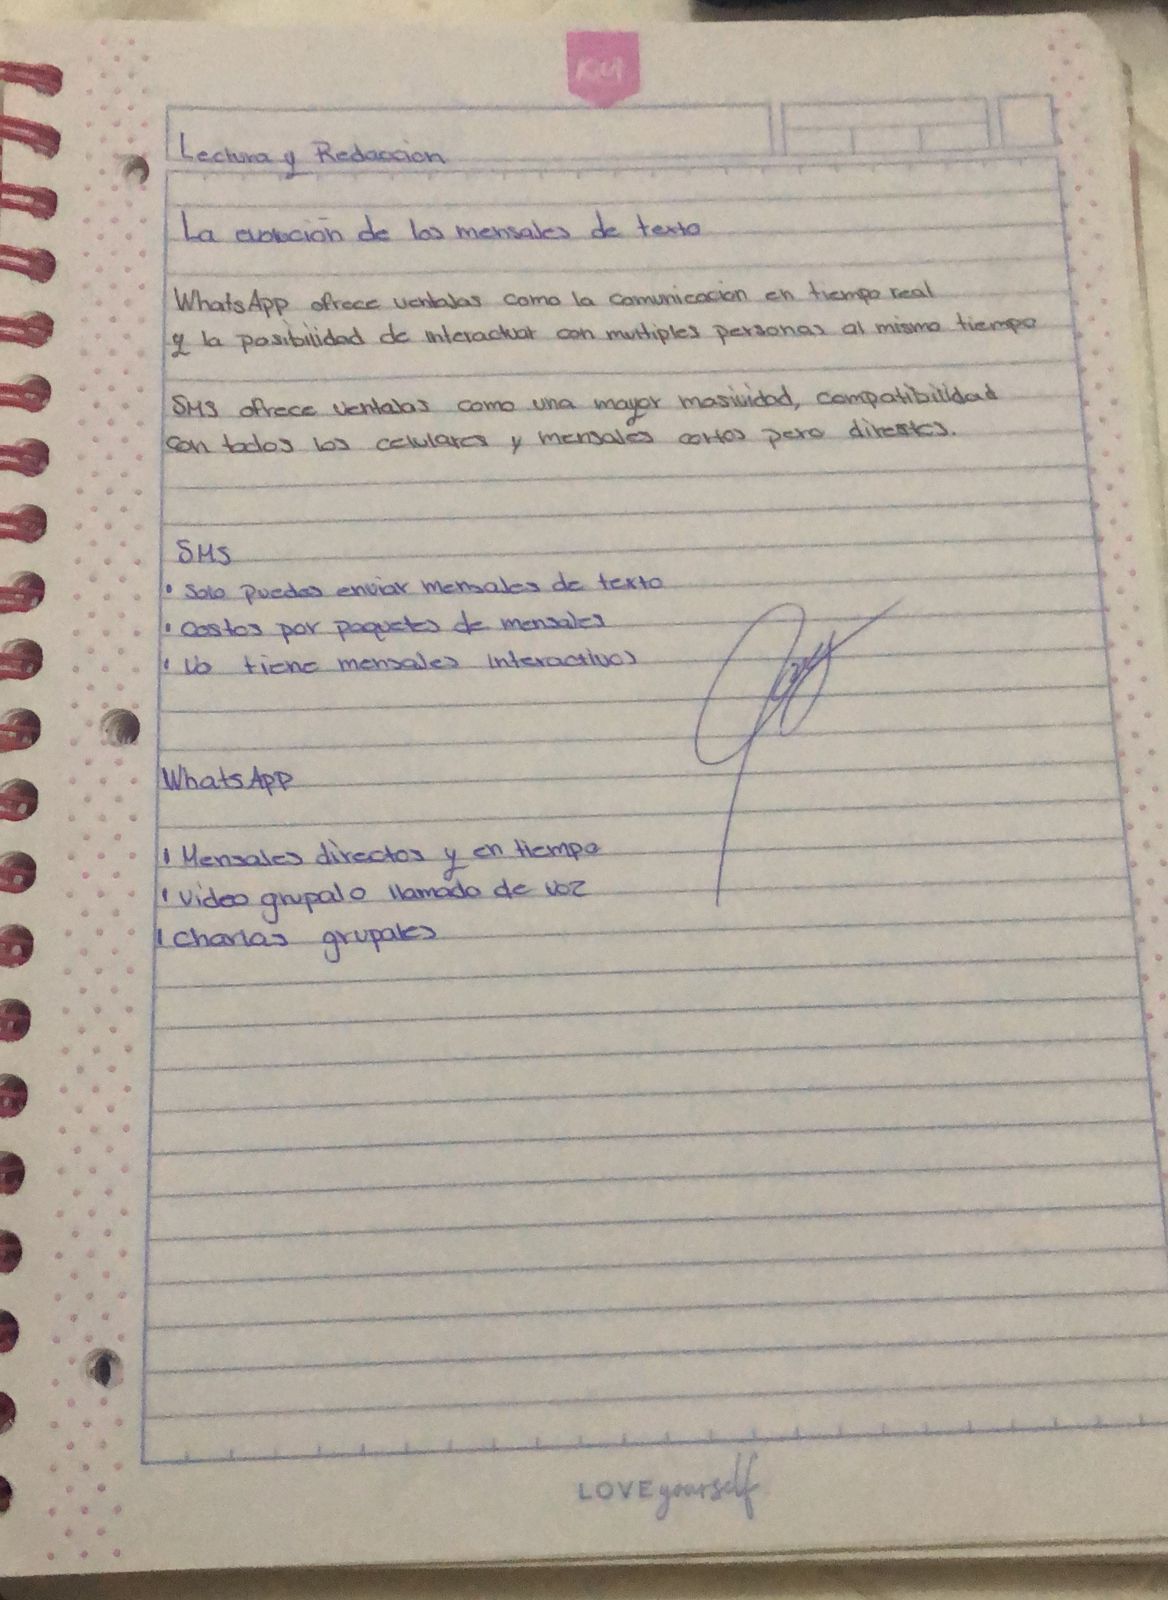 KM
Lectura y Redaccion
La evolución de los mensajes de texto
WhatsApp ofrece ventajas como la comunicacion en tiempo real
y la posibilidad de interactuar con multiples personas al mismo tiempo
SMS ofrece ventajas como una mayor masividad, compatibilidad
con todos los celulares y mensajes cortos pero directos.
SMS
• Solo puedes enviar mensajes de texto
• Costos por paquetes de mensajes
• No tiene mensajes interactivos
WhatsApp
• Mensajes directos y en tiempo
• Video grupal o llamada de voz
• Charlas grupales
LOVE yourself